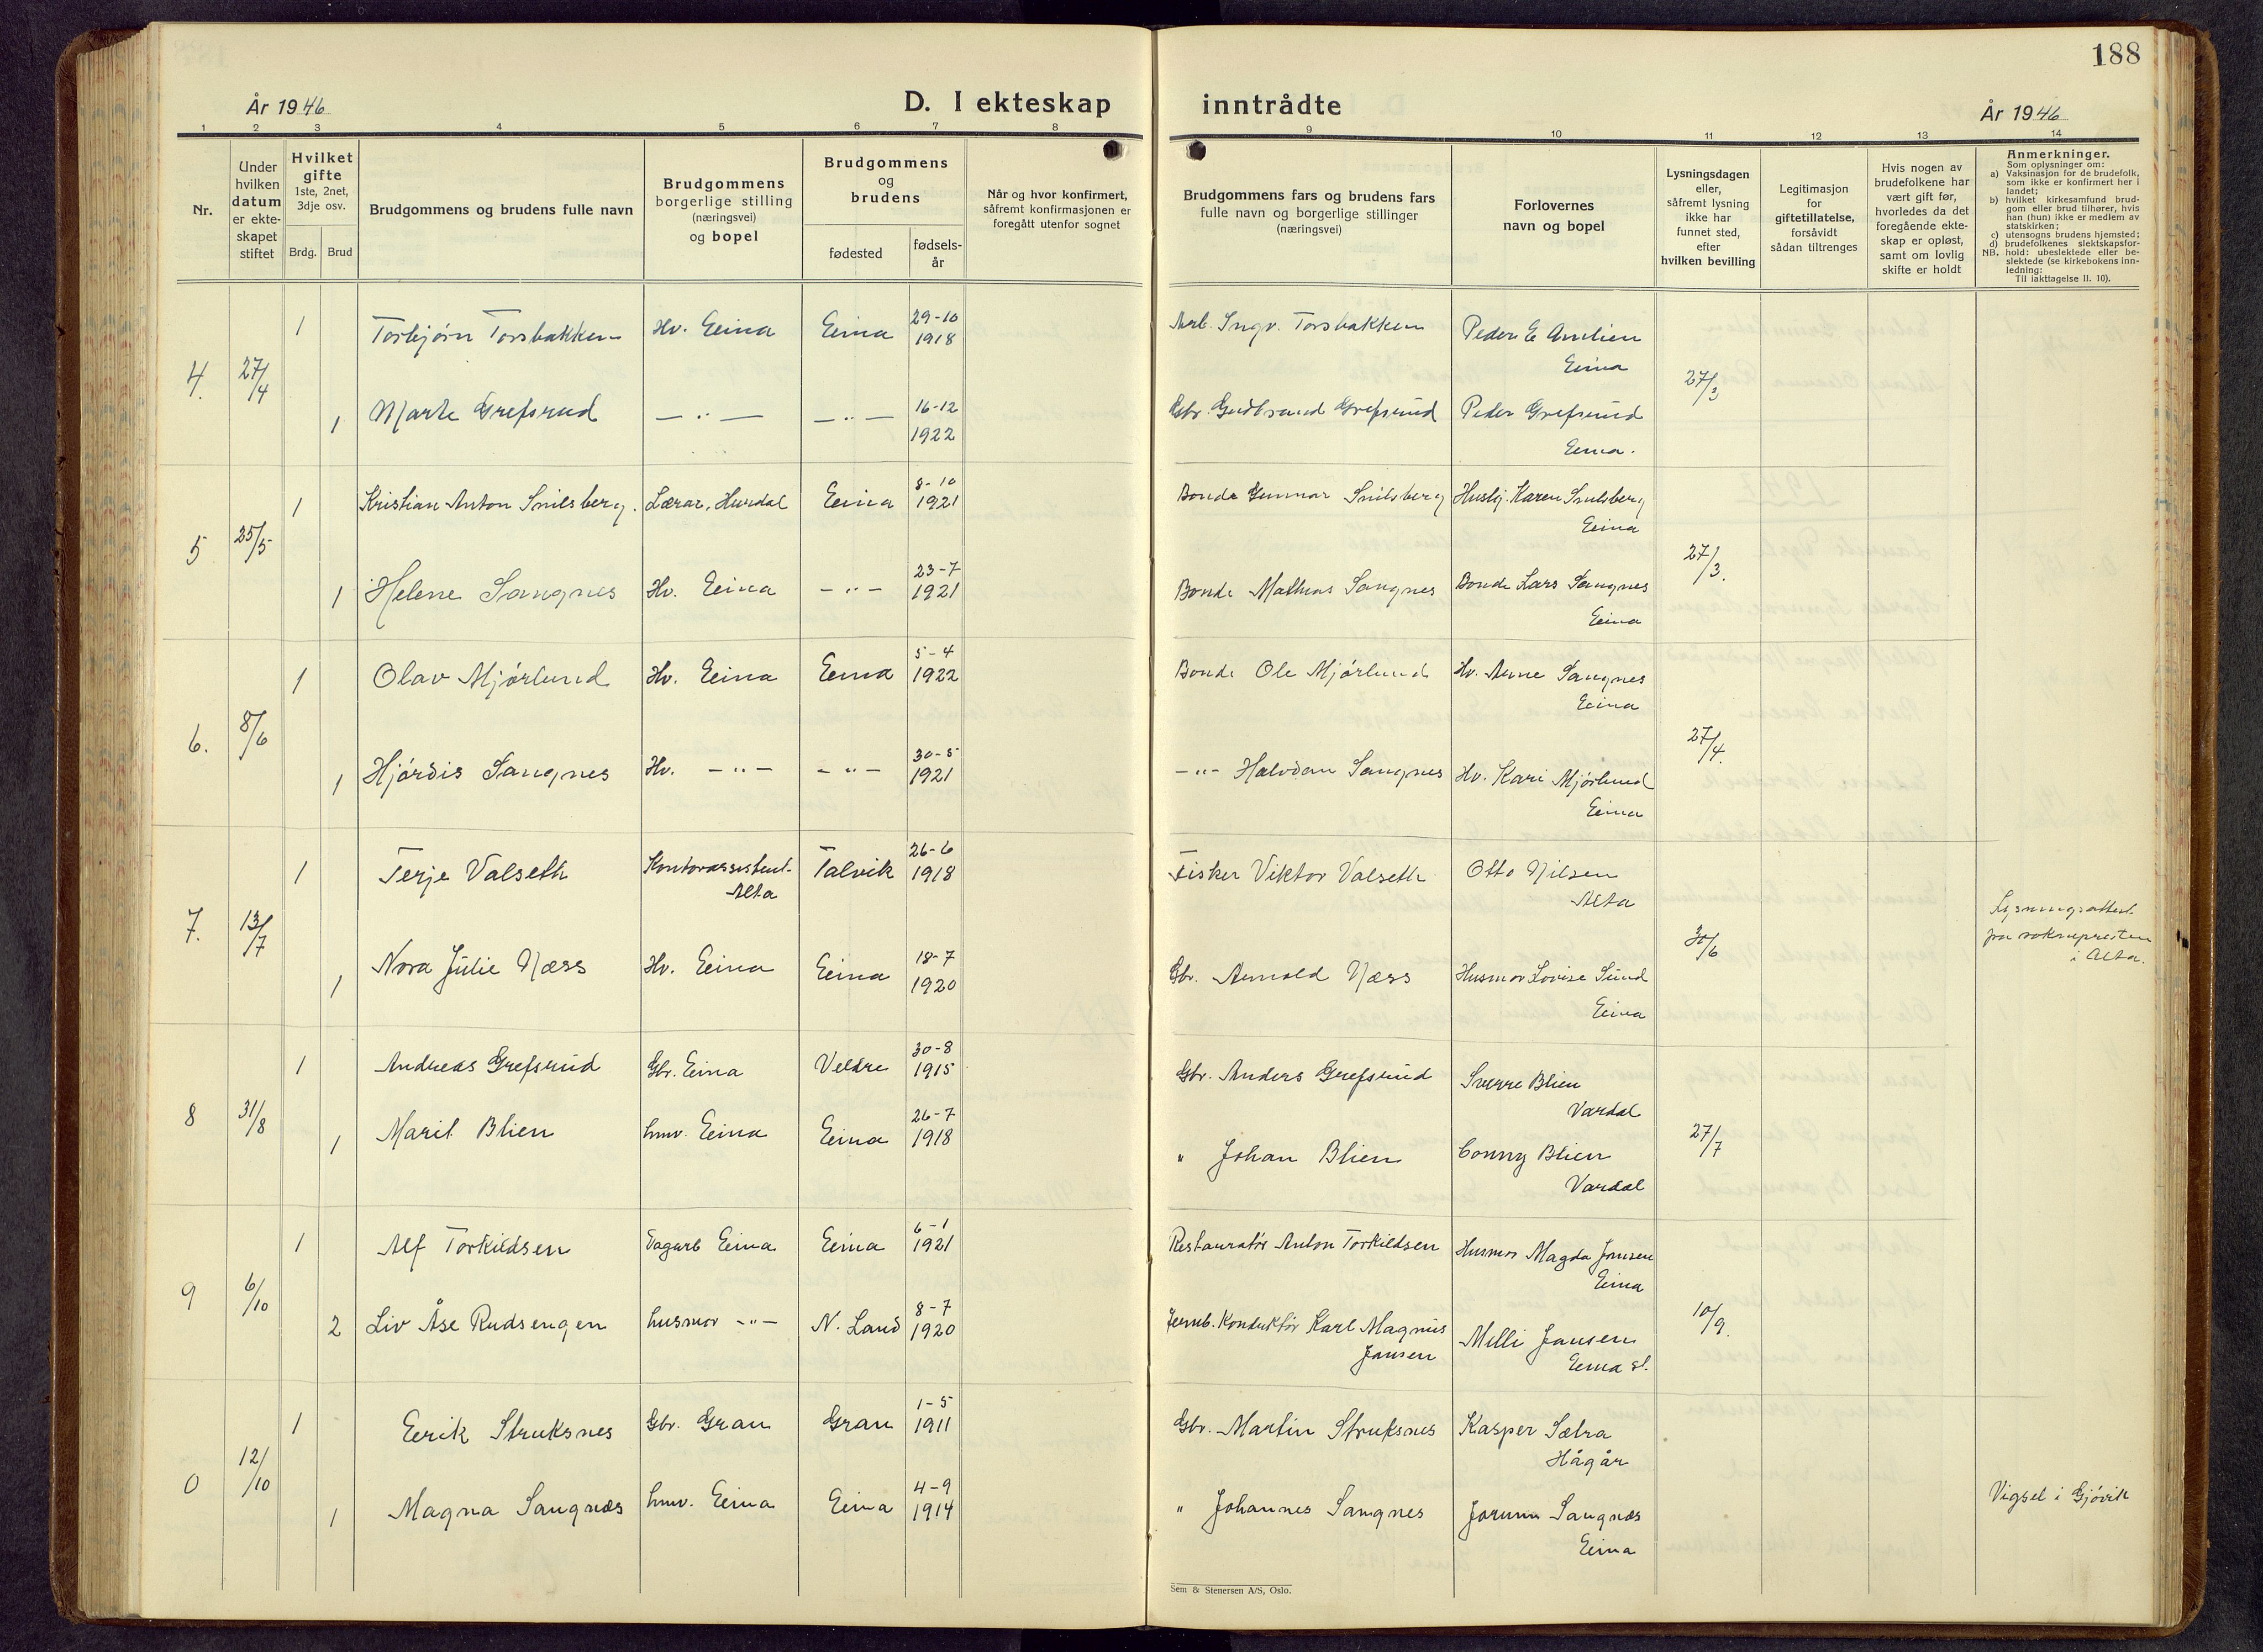 188
År 1946
D. I ekteskap inntrådte
År 1946
1 2 3 4 5 6 7 8 9 10 11 12 13 14
Nr.
Under
hvilken
datum
er ekte-
skapet
stiftet
Hvilket
gifte
1ste, 2net,
3dje osv.
Brdg. Brud
Brudgommens og brudens fulle navn
Brudgommens
borgerlige stilling
(næringsvei)
og bopel
Brudgommens
og
brudens
fødested
fødsels-
år
Når og hvor konfirmert,
såfremt konfirmasjonen er
foregått utenfor sognet
Brudgommens fars og brudens fars
fulle navn og borgerlige stillinger
(næringsvei)
Forlovernes
navn og bopel
Lysningsdagen
eller,
såfremt lysning
ikke har
funnet sted,
efter
hvilken bevilling
Legitimasjon
for
giftetillatelse,
forsåvidt
sådan tiltrenges
Hvis nogen av
brudefolkene har
vært gift før,
hvorledes da det
foregående ekte-
skap er opløst,
samt om lovlig
skifte er holdt
Anmerkninger.
Som oplysninger om:
a) Vaksinasjon for de brudefolk,
som ikke er konfirmert her i
landet;
b) hvilket kirkesamfund brud-
gom eller brud tilhører, hvis
han (hun) ikke er medlem av
statskirken;
c) utensogns brudens hjemsted;
d) brudefolkenes slektskapsfor-
hold: ubeslektede eller be-
slektede (se kirkebokens inn-
ledning:
NB. Til iakttagelse II. 10).
4. 27/4
1 Torbjørn Torsbakken Hv. Eina Eina 29-10 1918 Arb. Ingv. Torsbakken Peder E Amlien
Eina
27/3
1 Marte Grefsrud — " — — " — 16-12 1922 Gbr. Gudbrand Grefsrud Peder Grefsrud
Eina.
5 25/5
1 Kristian Anton Snilsberg. Lærar, Hurdal Eina 8-10 1921 Bonde Gunnar Snilsberg Huslj. Karen Snilsberg
Eina
27/3.
1 Helene Sangnes Hv. Eina - " - 23-7 1921 Bonde Mathias Sangnes Bonde Lars Sangnes
Eina
6. 8/6
1 Olav Mjørlund Hv. Eina Eina 5-4 1922 Bonde Ole Mjørlund Hv. Anne Sangnes
Eina
27/4.
1 Hjørdis Sangnes Hv. - " - - " - 30-5 1921 - " - Halvdan Sangnes Hv. Kari Mjørlund
Eina
7. 13/7
1 Terje Valseth Kontorassistent- Alta Talvik 26-6 1918 Fisker Viktor Valseth Otto Nilsen
Alta
30/6
Lysningsattest
fra soknepresten
i Alta.
1 Nora Julie Næss Hv. Eina Eina 18-7 1920 Gbr. Arnold Næss Husmor Lovise Sund
Eina
8 31/8
1 Andreas Grefsrud Gbr. Eina Veldre 30-8 1915 Gbr. Anders Grefsrud Sverre Blien
Vardal
27/7
1 Marit Blien hmv. Eina Eina 26-7 1918 " Johan Blien Conny Blien
Vardal
9 6/10
1 Alf Torkildsen Dagarb Eina Eina 6-1 1921 Restauratør Anton Torkildsen Husmor Magda Jansen
Eina
10/9.
2 Liv Åse Rudsengen husmor - " - N. Land 8-7 1920 Jernb. Konduktør Karl Magnus Jansen Milli Jansen
Eina st.
0 12/10
1 Eirik Struksnes Gbr. Gran Gran 1-5 1911 Gbr. Martin Struksnes Kasper Sætra
Hågår
1 Magna Sangnæs hmv. Eina Eina 4-9 1914 " Johannes Sangnes Jorunn Sangnæs
Eina
Vigsel i Gjøvik
Sem & Stenersen A/S, Oslo.